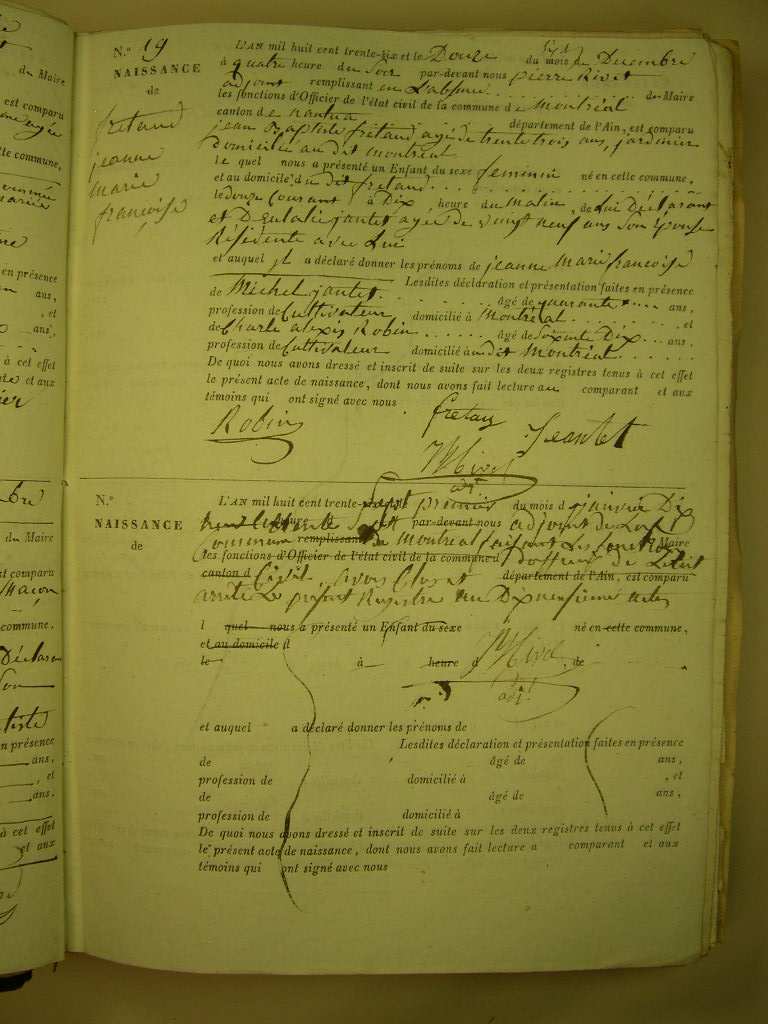 N.° 19
NAISSANCE
de
fretaud
jeanne
marie
françoise
L'AN mil huit cent trente-six et le Douze du mois de Decembre
à quatre heure du soir par-devant nous pierre Rivet
adjoint remplissant en L'absence du Maire
les fonctions d'Officier de l'état civil de la commune de Montréal
canton de nantua département de l'Ain, est comparu
jean Baptiste fretaud agé de trente trois ans, jardinier
Domicilié au dit montréal
le quel nous a présenté un Enfant du sexe feminin né en cette commune,
et au domicile du dit fretaud
le douze Courant à Dix heure du Matin, de Lui Déclarant
et D'Eulalie jantet agée de vingt neuf ans Son Épouse
Résidente avec Lui
et auquel il a déclaré donner les prénoms de jeanne Marie francoise
Lesdites déclaration et présentation faites en présence
de Michel jantet âgé de quarante ans,
profession de Cultivateur domicilié à Montréal, et
de Charle alexis Robin âgé de Soixante Dix ans,
profession de Cultivateur domicilié au dit Montréal
De quoi nous avons dressé et inscrit de suite sur les deux registres tenus à cet effet
le présent acte de naissance, dont nous avons fait lecture au comparant et aux
témoins qui ont signé avec nous
Robin fretau Jeantet
Rivet
adjt
N.°
NAISSANCE
de
L'AN mil huit cent trente-sept premier du mois d janvier Dix
huit cent trente Sept par-devant nous adjoint de La
Commune remplissant de Montréal faisant Les fonctions Maire
les fonctions d'Officier de l'état civil de la commune d D'officier de L'etat
canton d Civil, avons Clos et département de l'Ain, est comparu
arreté Le présent Registre au Dix neufieme acte
l quel nous a présenté un Enfant du sexe né en cette commune,
et au domicile d
le à heure d , de
Rivet
adjt
et auquel a déclaré donner les prénoms de
Lesdites déclaration et présentation faites en présence
de âgé de ans,
profession de domicilié à , et
de âgé de ans,
profession de domicilié à
De quoi nous avons dressé et inscrit de suite sur les deux registres tenus à cet effet
le présent acte de naissance, dont nous avons fait lecture a comparant et aux
témoins qui ont signé avec nous